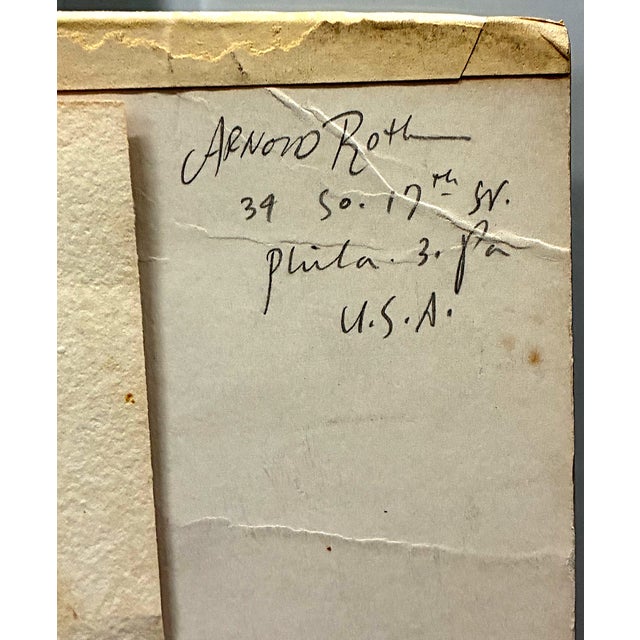 Arnold Roth
34 So. 17th St.
Phila. 3. Pa
U.S.A.